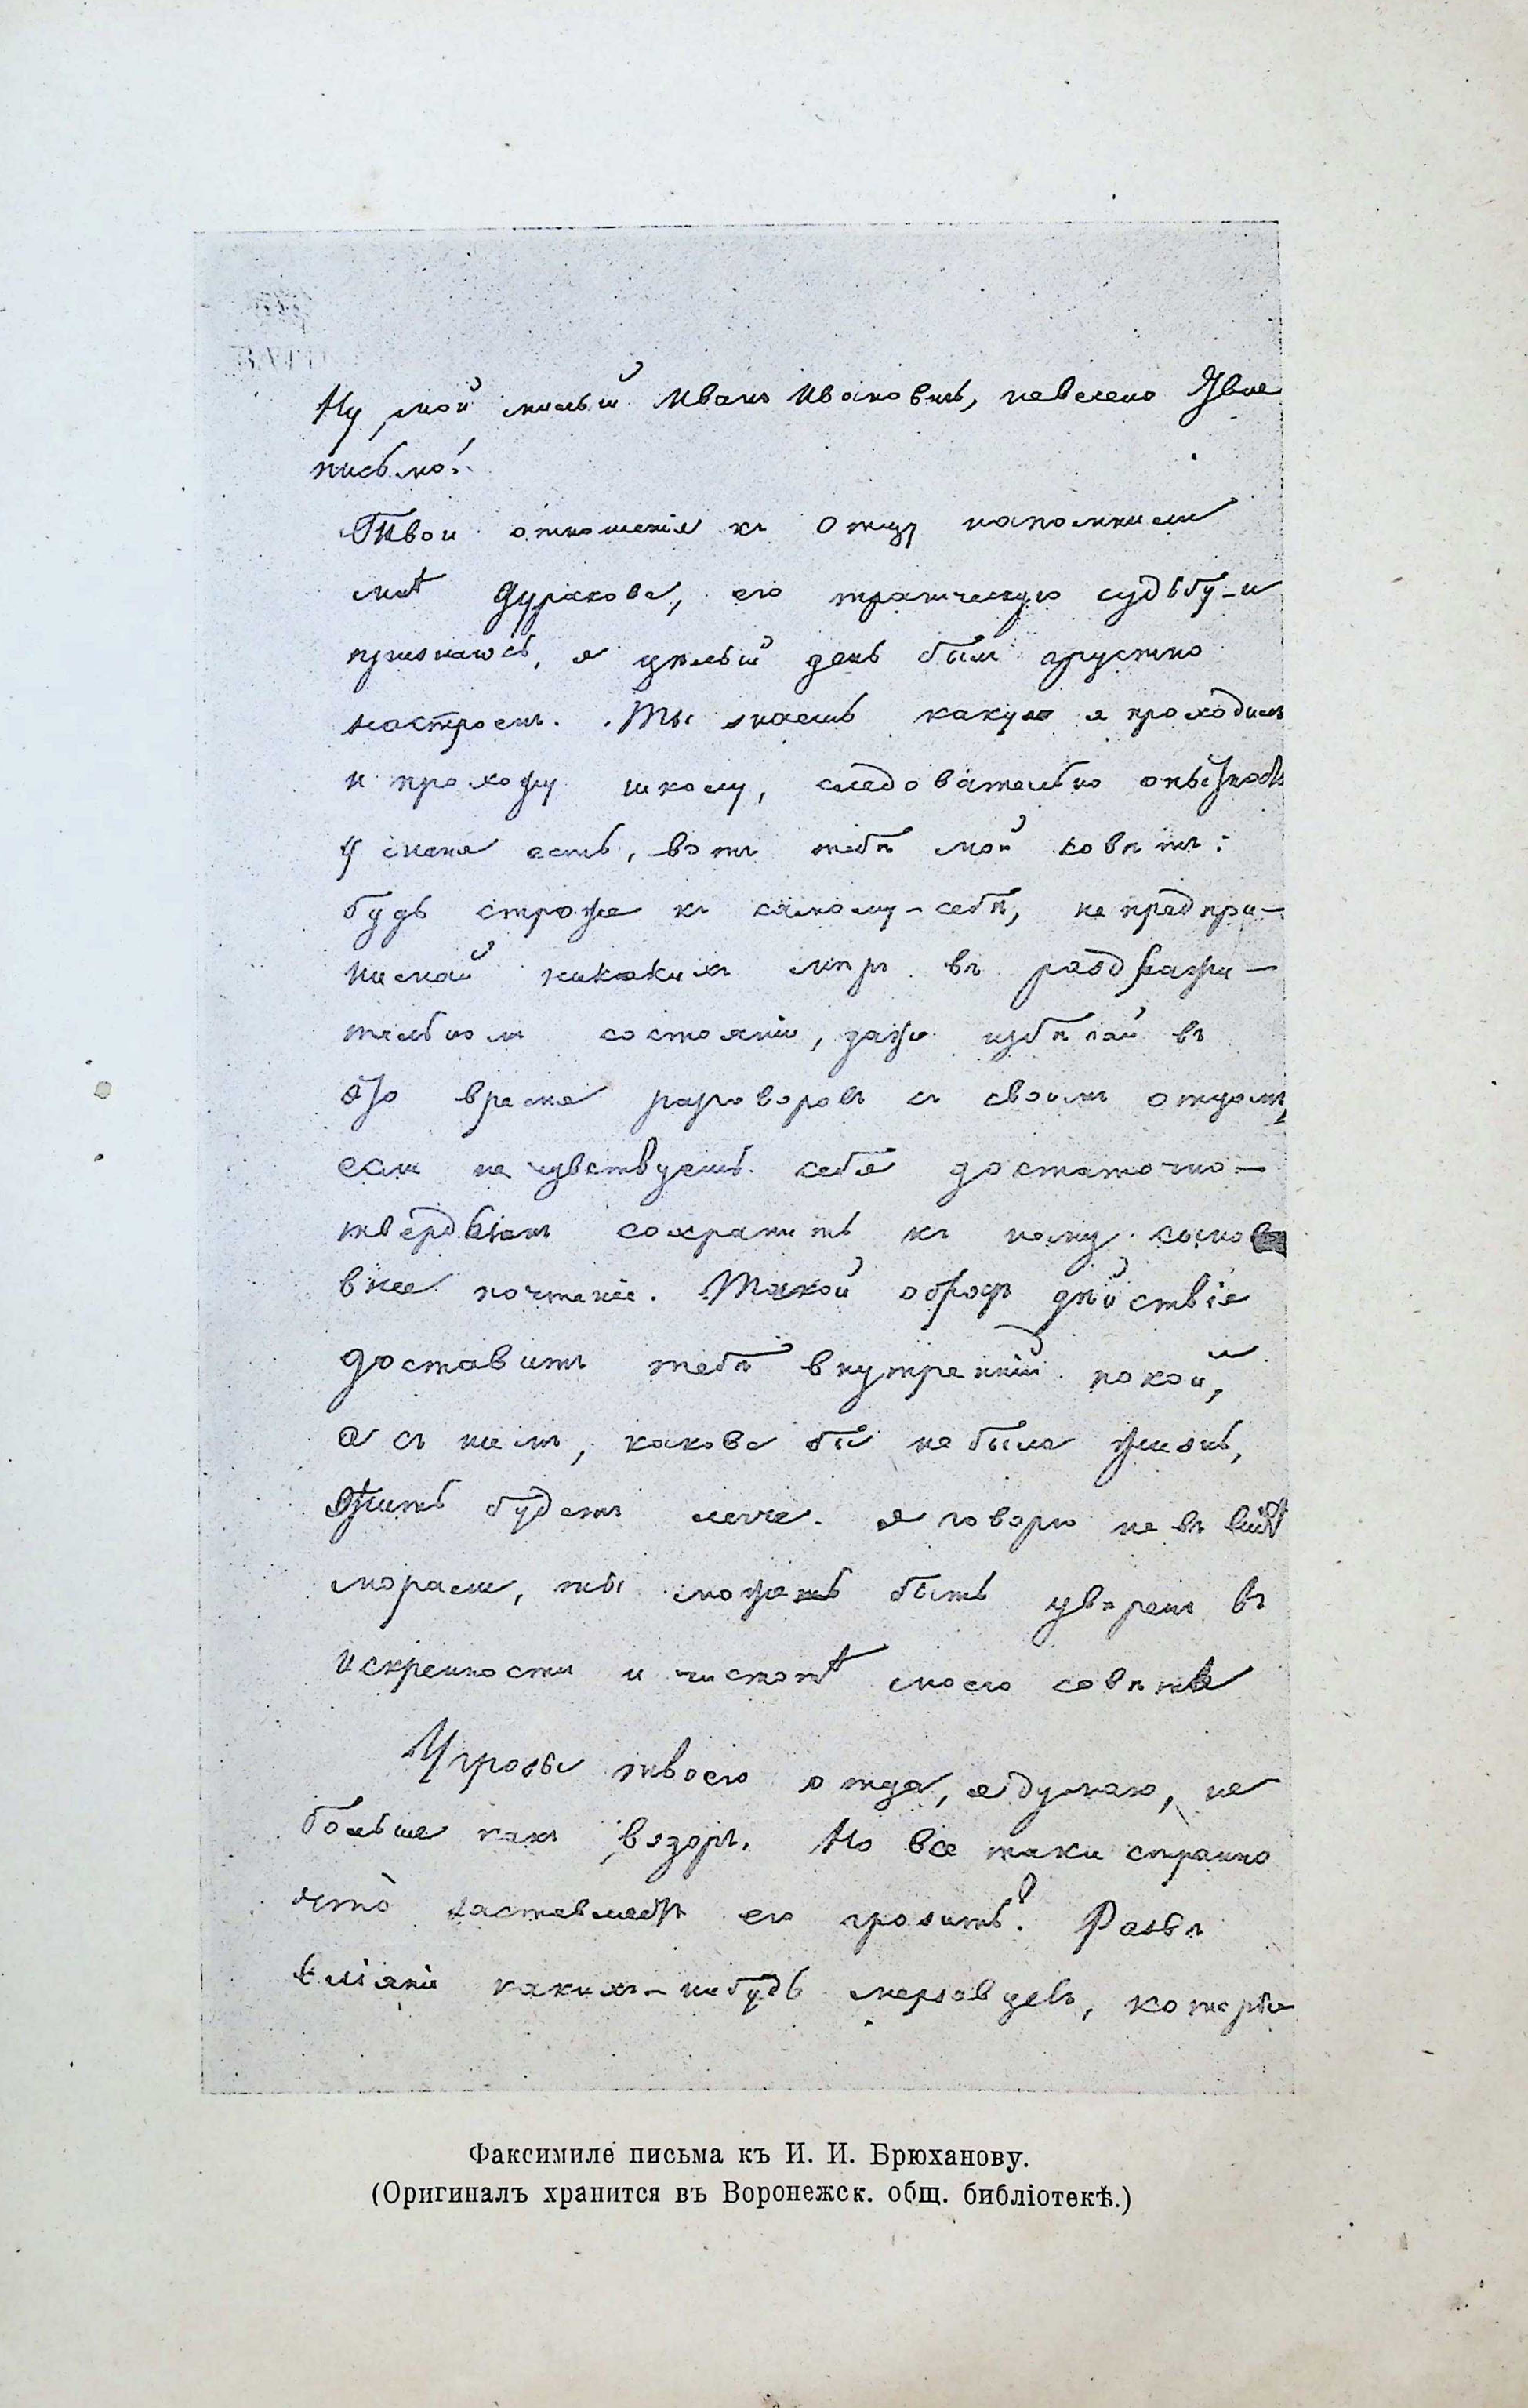 Ну, мой милый Иванъ Ивановичъ, невесело Твое
письмо!
Твои отношенія къ отцу напомнили
мнѣ Дуракова, его трагическую судьбу — и
признаюсь, я цѣлый день былъ грустно
настроенъ. Ты знаешь какую я проходилъ
и прохожу школу, следовательно опытность
у меня есть, вотъ тебѣ мой совѣтъ:
будь строже къ самому-себѣ, не предпри-
нимай никакихъ мѣръ въ раздражи-
тельномъ состояніи, даже избѣгай въ
это время разговоровъ съ своимъ отцомъ,
если не чувствуешь себя достаточно-
твердымъ сохранить къ нему сынов
внее почтеніе. Такой образъ дѣйствія
доставитъ тебѣ внутренній покой,
а съ нимъ, какова бы не была жизнь,
жить будетъ легче. Я говорю не въ видѣ
морали, ты можешь быть увѣренъ въ
искренности и чистотѣ моего совѣта
Угрозы твоего отца, я думаю, не
больше какъ вздоръ. Но все таки странно
что заставляетъ его грозить? Развѣ
вліяніе какихъ-нибудь мерзавцевъ, которые
Факсимиле письма къ И. И. Брюханову.
(Оригиналъ хранится въ Воронежск. общ. библіотекѣ.)